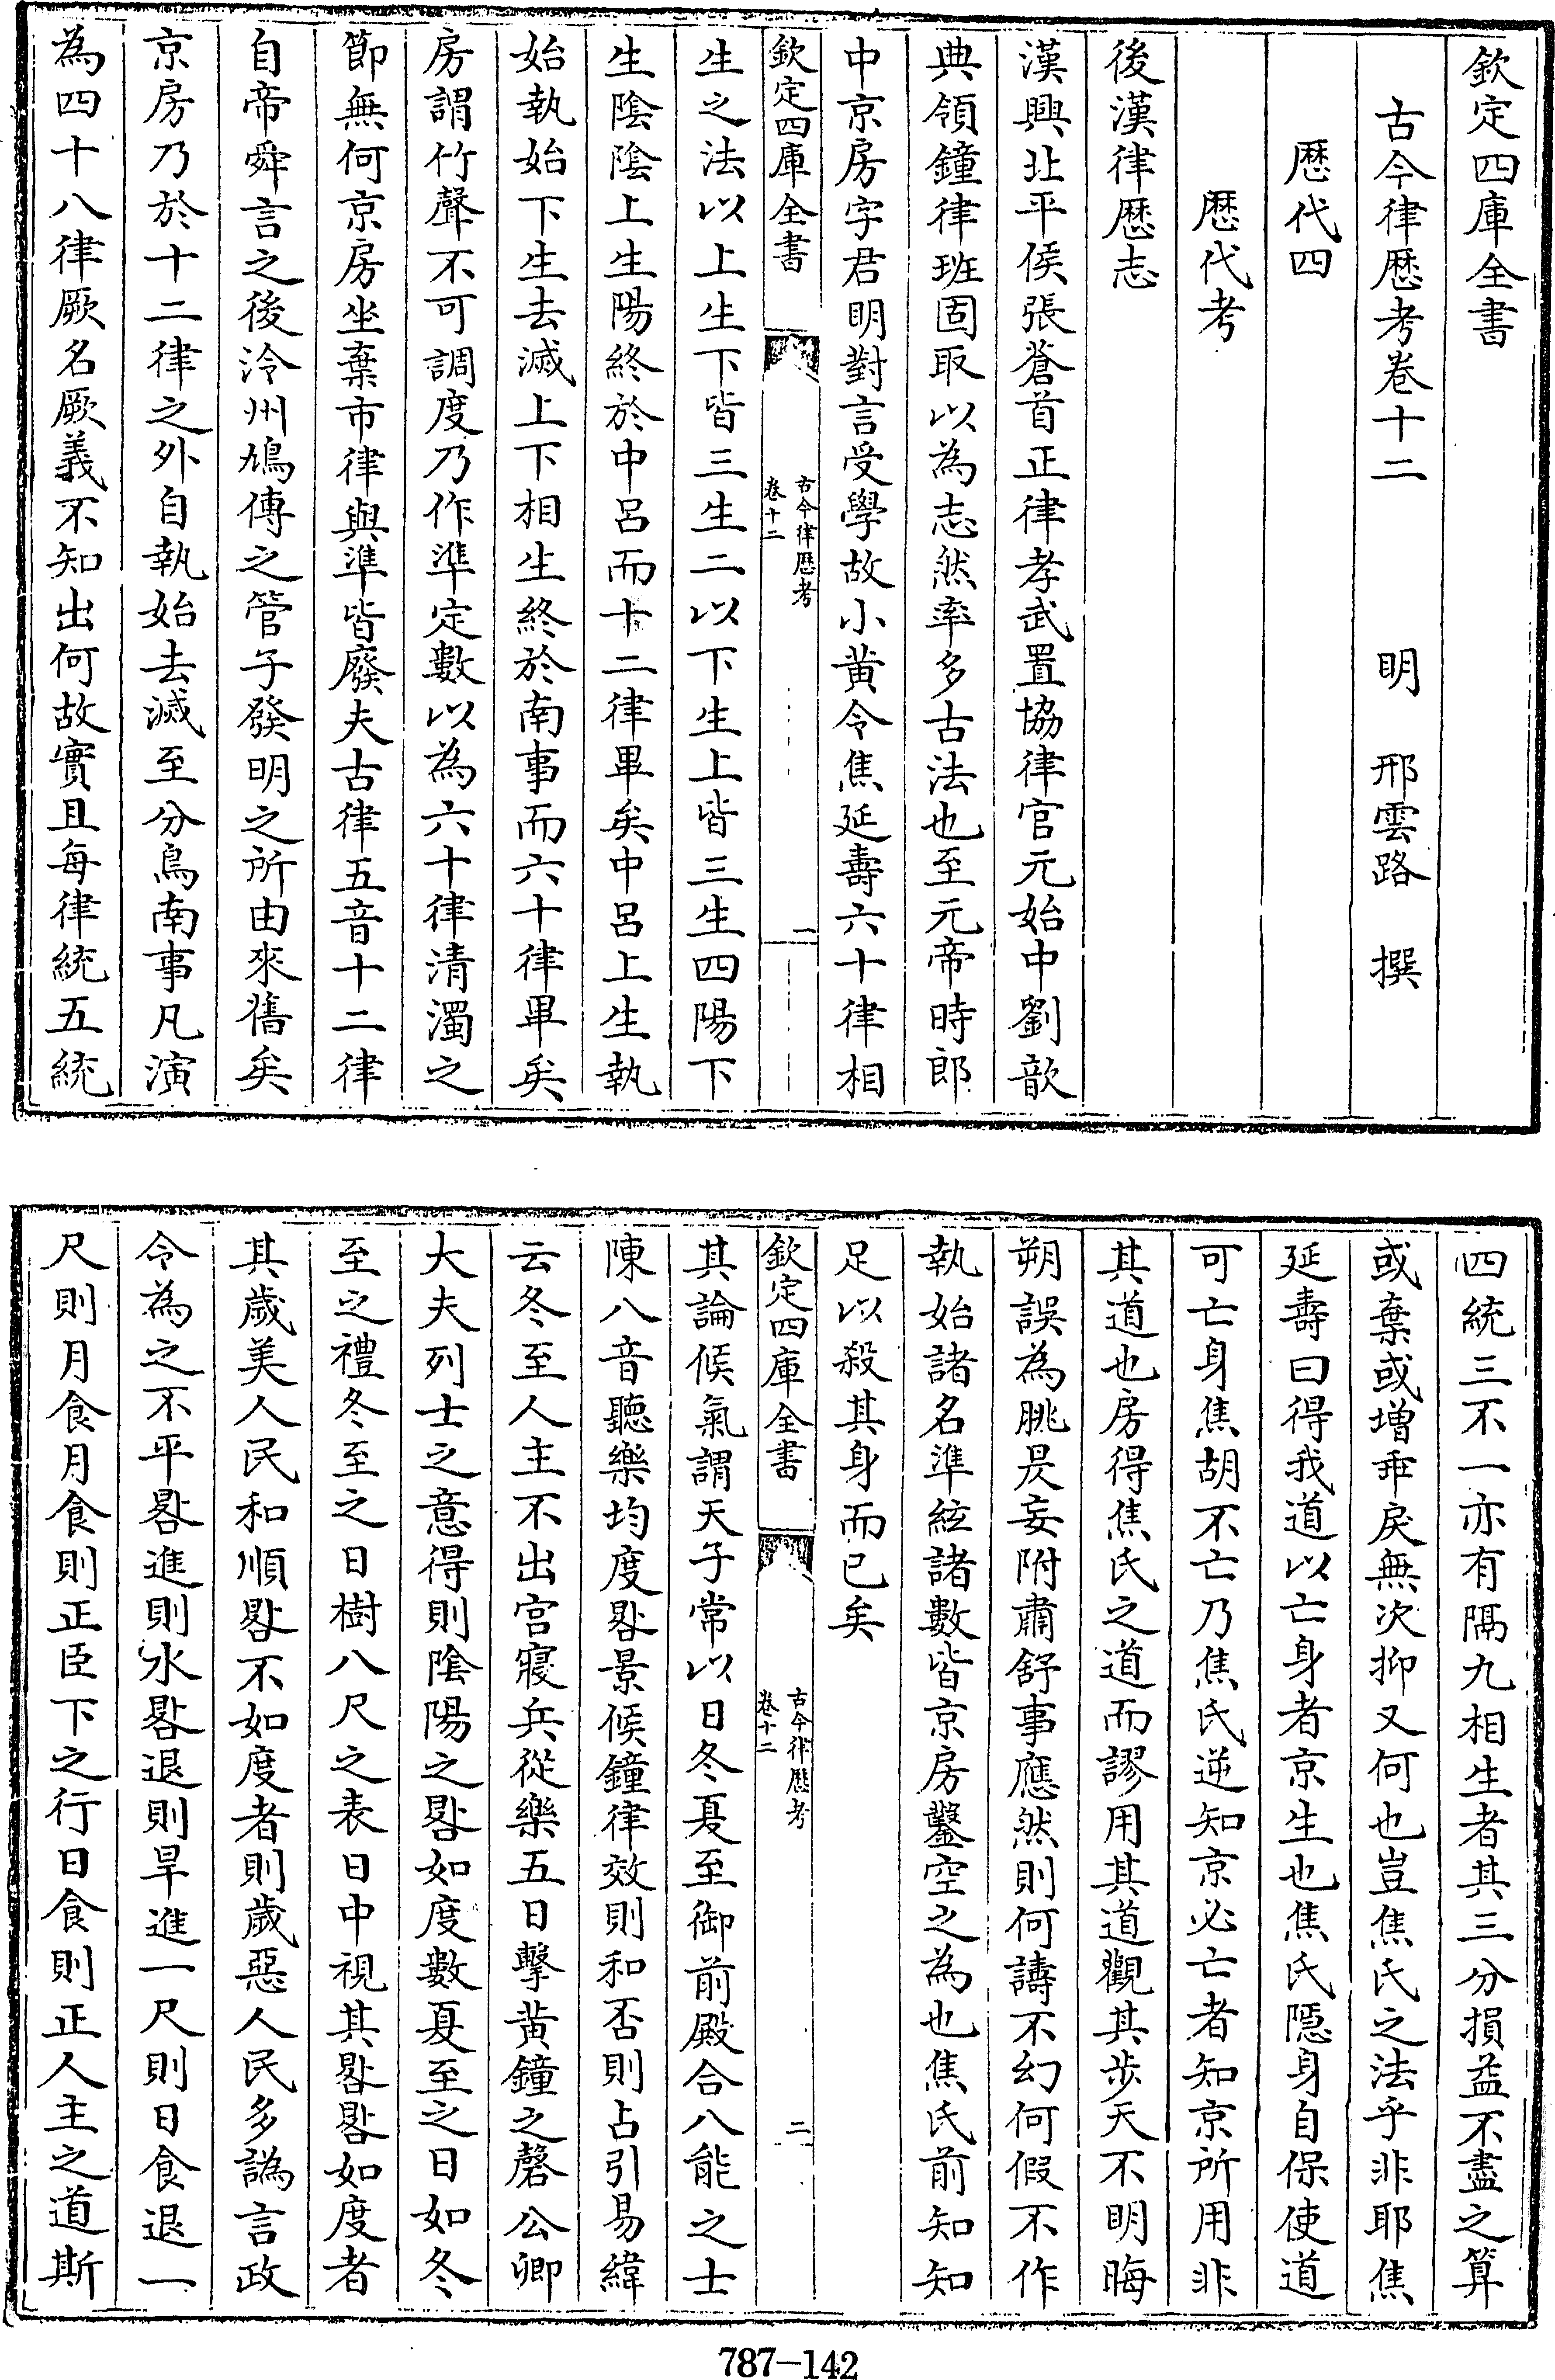 欽定四庫全書
古今律厯考卷十二　　明　邢雲路　撰
厯代四
厯代考
後漢律厯志
漢興北平侯張蒼首正律孝武置協律官元始中劉歆
典領鐘律班固取以為志然率多古法也至元帝時郎
中京房字君明對言受學故小黄令焦延壽六十律相
欽定四庫全書
古今律厯考
卷十二
一
生之法以上生下皆三生二以下生上皆三生四陽下
生陰陰上生陽終於中呂而十二律畢矣中呂上生執
始執始下生去滅上下相生終於南事而六十律畢矣
房謂竹聲不可調度乃作準定數以為六十律清濁之
節無何京房坐棄市律與準皆廢夫古律五音十二律
自帝舜言之後泠州鳩傳之管子發明之所由來舊矣
京房乃於十二律之外自執始去滅至分鳥南事凡演
為四十八律厥名厥義不知出何故實且每律統五統
四統三不一亦有隔九相生者其三分損益不盡之算
或棄或增乖戾無次抑又何也豈焦氏之法乎非耶焦
延壽曰得我道以亡身者京生也焦氏隱身自保使道
可亡身焦胡不亡乃焦氏逆知京必亡者知京所用非
其道也房得焦氏之道而謬用其道觀其步天不明晦
朔誤為脁昃妄附肅舒事應然則何譸不幻何假不作
執始諸名準絃諸數皆京房鑿空之為也焦氏前知知
足以殺其身而已矣
欽定四庫全書
古今律厯考
卷十二
二
其論候氣謂天子常以日冬夏至御前殿合八能之士
陳八音聽樂均度晷景候鐘律效則和否則占引易緯
云冬至人主不出宮寢兵從樂五日擊黄鐘之磬公卿
大夫列士之意得則陰陽之晷如度數夏至之日如冬
至之禮冬至之日樹八尺之表日中視其晷晷如度者
其歲美人民和順晷不如度者則歲惡人民多譌言政
令為之不平晷進則水晷退則旱進一尺則日食退一
尺則月食月食則正臣下之行日食則正人主之道斯
787-142